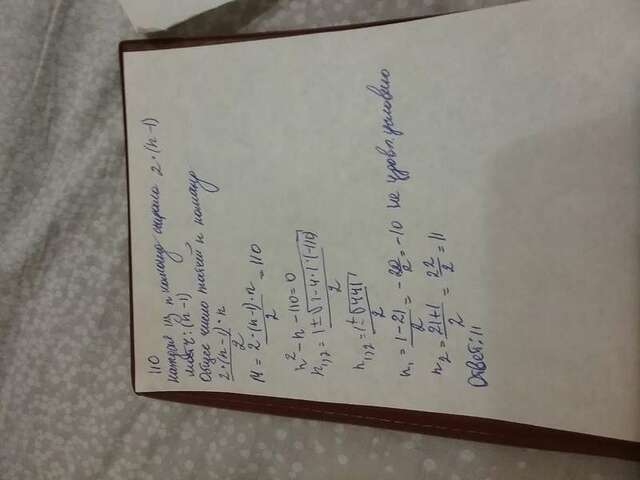 110
Каждая из n команд сыграла 2·(n-1)
матч: (n-1)
Общее число матчей n команд
2·(n-1)·n / 2
M = 2·(n-1)·n / 2 = 110
n² - n - 110 = 0
n₁,₂ = 1 ± √1-4·1·(-110) / 2
n₁,₂ = 1 ± √441 / 2
n₁ = 1-21 / 2 = -20/2 = -10 не удовл. условию
n₂ = 21+1 / 2 = 22/2 = 11
Ответ: 11